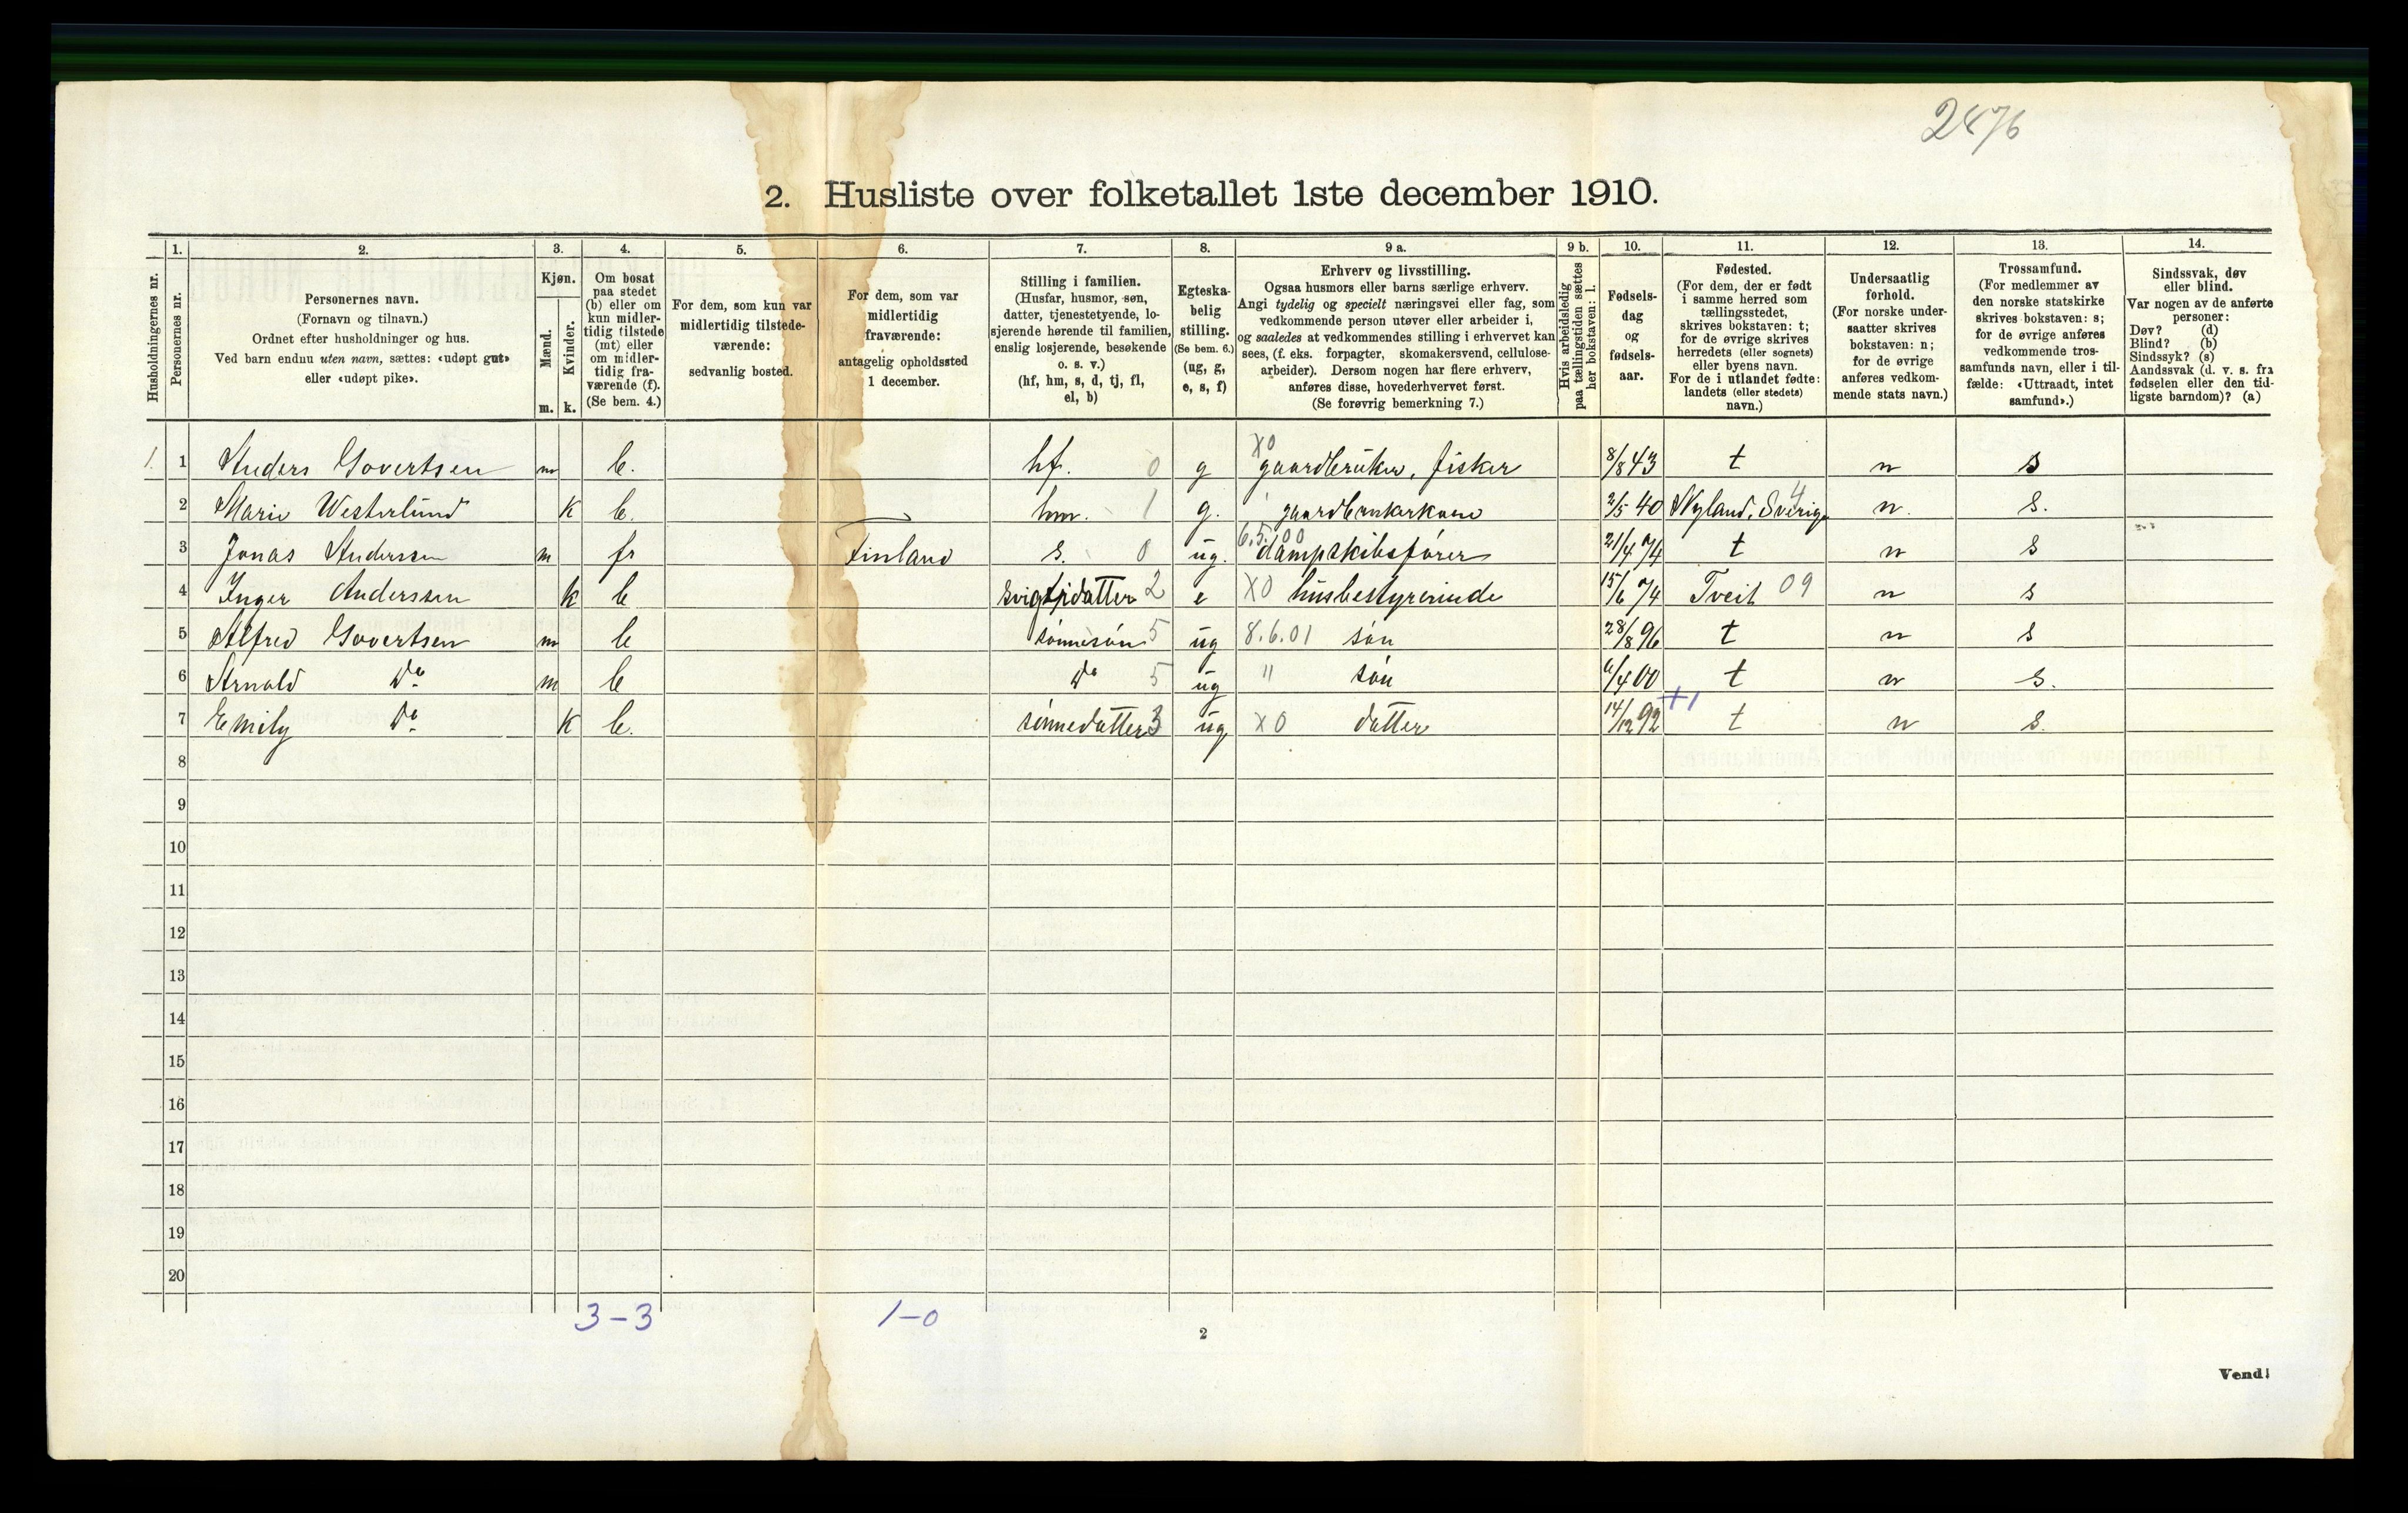 2476
2. Husliste over folketallet 1ste december 1910.
Husholdningernes nr.
1. Personernes nr.
2. Personernes navn. (Fornavn og tilnavn.) Ordnet efter husholdninger og hus. Ved barn endnu uten navn, sættes: «udøpt gut» eller «udøpt pike».
3. Kjøn. Mænd. m. Kvinder. k.
4. Om bosat paa stedet (b) eller om kun midlertidig tilstede (mt) eller om midlertidig fraværende (f). (Se bem. 4.)
5. For dem, som kun var midlertidig tilstedeværende: sedvanlig bosted.
6. For dem, som var midlertidig fraværende: antagelig opholdssted 1 december.
7. Stilling i familien. (Husfar, husmor, søn, datter, tjenestetyende, losjerende hørende til familien, enslig losjerende, besøkende o. s. v.) (hf, hm, s, d, tj, fl, el, b)
8. Egteskabelig stilling. (Se bem. 6.) (ug, g, e, s, f)
9 a. Erhverv og livsstilling. Ogsaa husmors eller barns særlige erhverv. Angi tydelig og specielt næringsvei eller fag, som vedkommende person utøver eller arbeider i, og saaledes at vedkommendes stilling i erhvervet kan sees, (f. eks. forpagter, skomakersvend, cellulosearbeider). Dersom nogen har flere erhverv, anføres disse, hovederhvervet først. (Se forøvrig bemerkning 7.)
9 b. Hvis arbeidsledig paa tællingstiden sættes her bokstaven: l.
10. Fødselsdag og fødselsaar.
11. Fødested. (For dem, der er født i samme herred som tællingsstedet, skrives bokstaven: t; for de øvrige skrives herredets (eller sognets) eller byens navn. For de i utlandet fødte: landets (eller stedets) navn.)
12. Undersaatlig forhold. (For norske undersaatter skrives bokstaven: n; for de øvrige anføres vedkommende stats navn.)
13. Trossamfund. (For medlemmer av den norske statskirke skrives bokstaven: s; for de øvrige anføres vedkommende trossamfunds navn, eller i tilfælde: «Uttraadt, intet samfund».)
14. Sindssvak, døv eller blind. Var nogen av de anførte personer: Døv? (d) Blind? (b) Sindssyk? (s) Aandssvak (d. v. s. fra fødselen eller den tidligste barndom)? (a)
1. 1 Anders Govertsen m b. hf. 0 g X0 gaardbruker, fisker 8/8 43 t n s
2 Marie Westerlund k b. hm. 1 g. gaardbrukerkone 2/5 40 Nyland, Sverige 4 n. s.
3 Jonas Anderssen m fr Finland s. 0 ug. 6.5.00 dampskibsfører 21/4 74 t n s
4 Inger Anderssen k b svigerdatter 2 e X0 husbestyrerinde 15/6 74 Tveit 09 n s
5 Alfred Govertsen m b sønnesøn 5 ug 8.6.01 søn 28/8 96 t n s
6 Arnold Do m b Do 5 ug " søn 6/4 00 t n s.
7 Emily Do k b. sønnedatter 3 ug X0 datter 14/12 92 +1 t n s.
8
9
10
11
12
13
14
15
16
17
18
19
20
3-3 1-0
2
Vend!